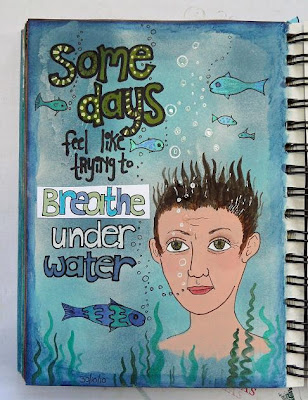 Some
days
feel like
trying to
Breathe
under
water